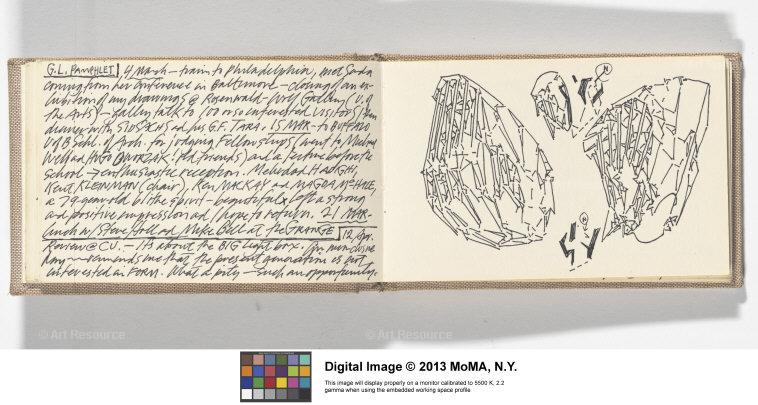 G.L. PAMPHLET 4 March – train to Philadelphia, met Gerda
coming from her conference in Baltimore – closing of an ex-
hibition of my drawings @ Rosenwald-Wolf Gallery (U. of
the Arts) – gallery talk to 100 or so interested visitors, then
dinner with SID SACHS and his G.F. TARA. 15 MAR – to BUFFALO
School of Arch. for judging Fellowships (went to
and HUGO DWORZAK old friends) and a lecture before the
school → enthusiastic reception. Mehrdad HADIGHI,
Kent KLEINMAN (chair), Ken MACKAY and MAGDA McHALE,
a 79 year old of the spirit – beautiful left a strong
and positive impression and I hope to return. 21 MAR –
lunch w/ Steve and Mike Bell at the GRANGE 12 Apr.
Review @ CU. – it's about the BIG Light box.
Ray reminds me that the present generation is not
interested in FORM. What a pity – such an opportunity.
N
N
© Art Resource
© Art Resource
Digital Image © 2013 MoMA, N.Y.
This image will display properly on a monitor calibrated to 5500 K, 2.2
gamma when using the embedded working space profile